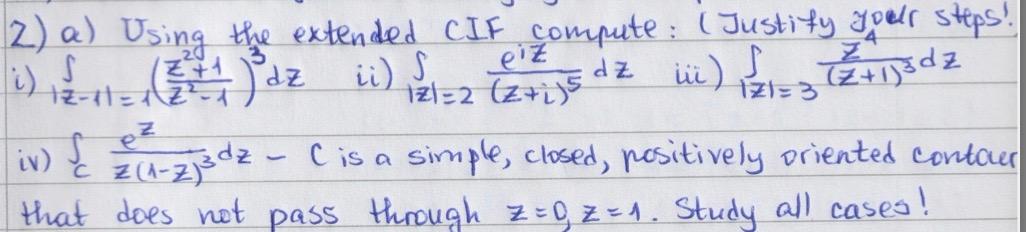 2) a) Using the extended CIF compute: (Justify your steps!
i) ∫_{|z-1|=1} ((z²+1)/(z²-1))³ dz ii) ∫_{|z|=2} e^{iz}/(z+i)⁵ dz iii) ∫_{|z|=3} z⁴/(z+1)³ dz
iv) ∫_C e^z/(z(1-z)³) dz - C is a simple, closed, positively oriented contour
that does not pass through z=0, z=1. Study all cases!